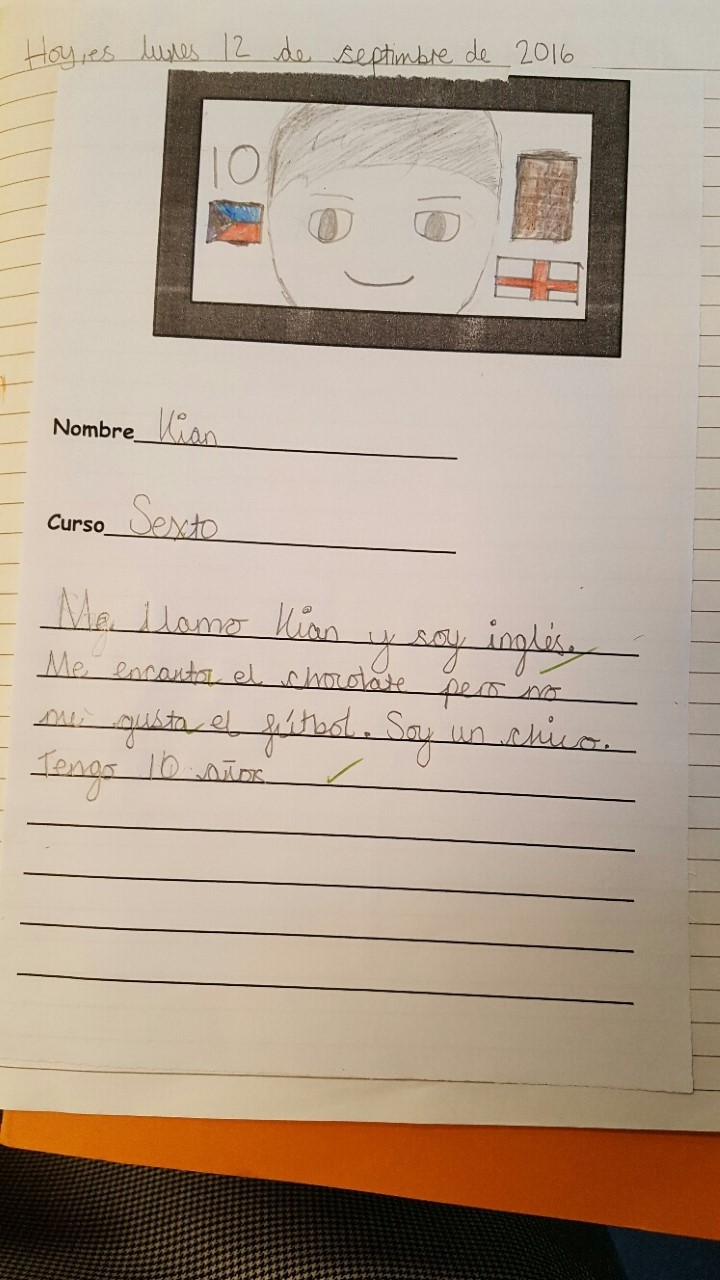 Hoy, es lunes 12 de septimbre de 2016
10
Nombre Kian
Curso Sexto
Me llamo Kian y soy inglés.
Me encanta el chocolate pero no
mi gusta el fútbol. Soy un chico.
Tengo 10 años